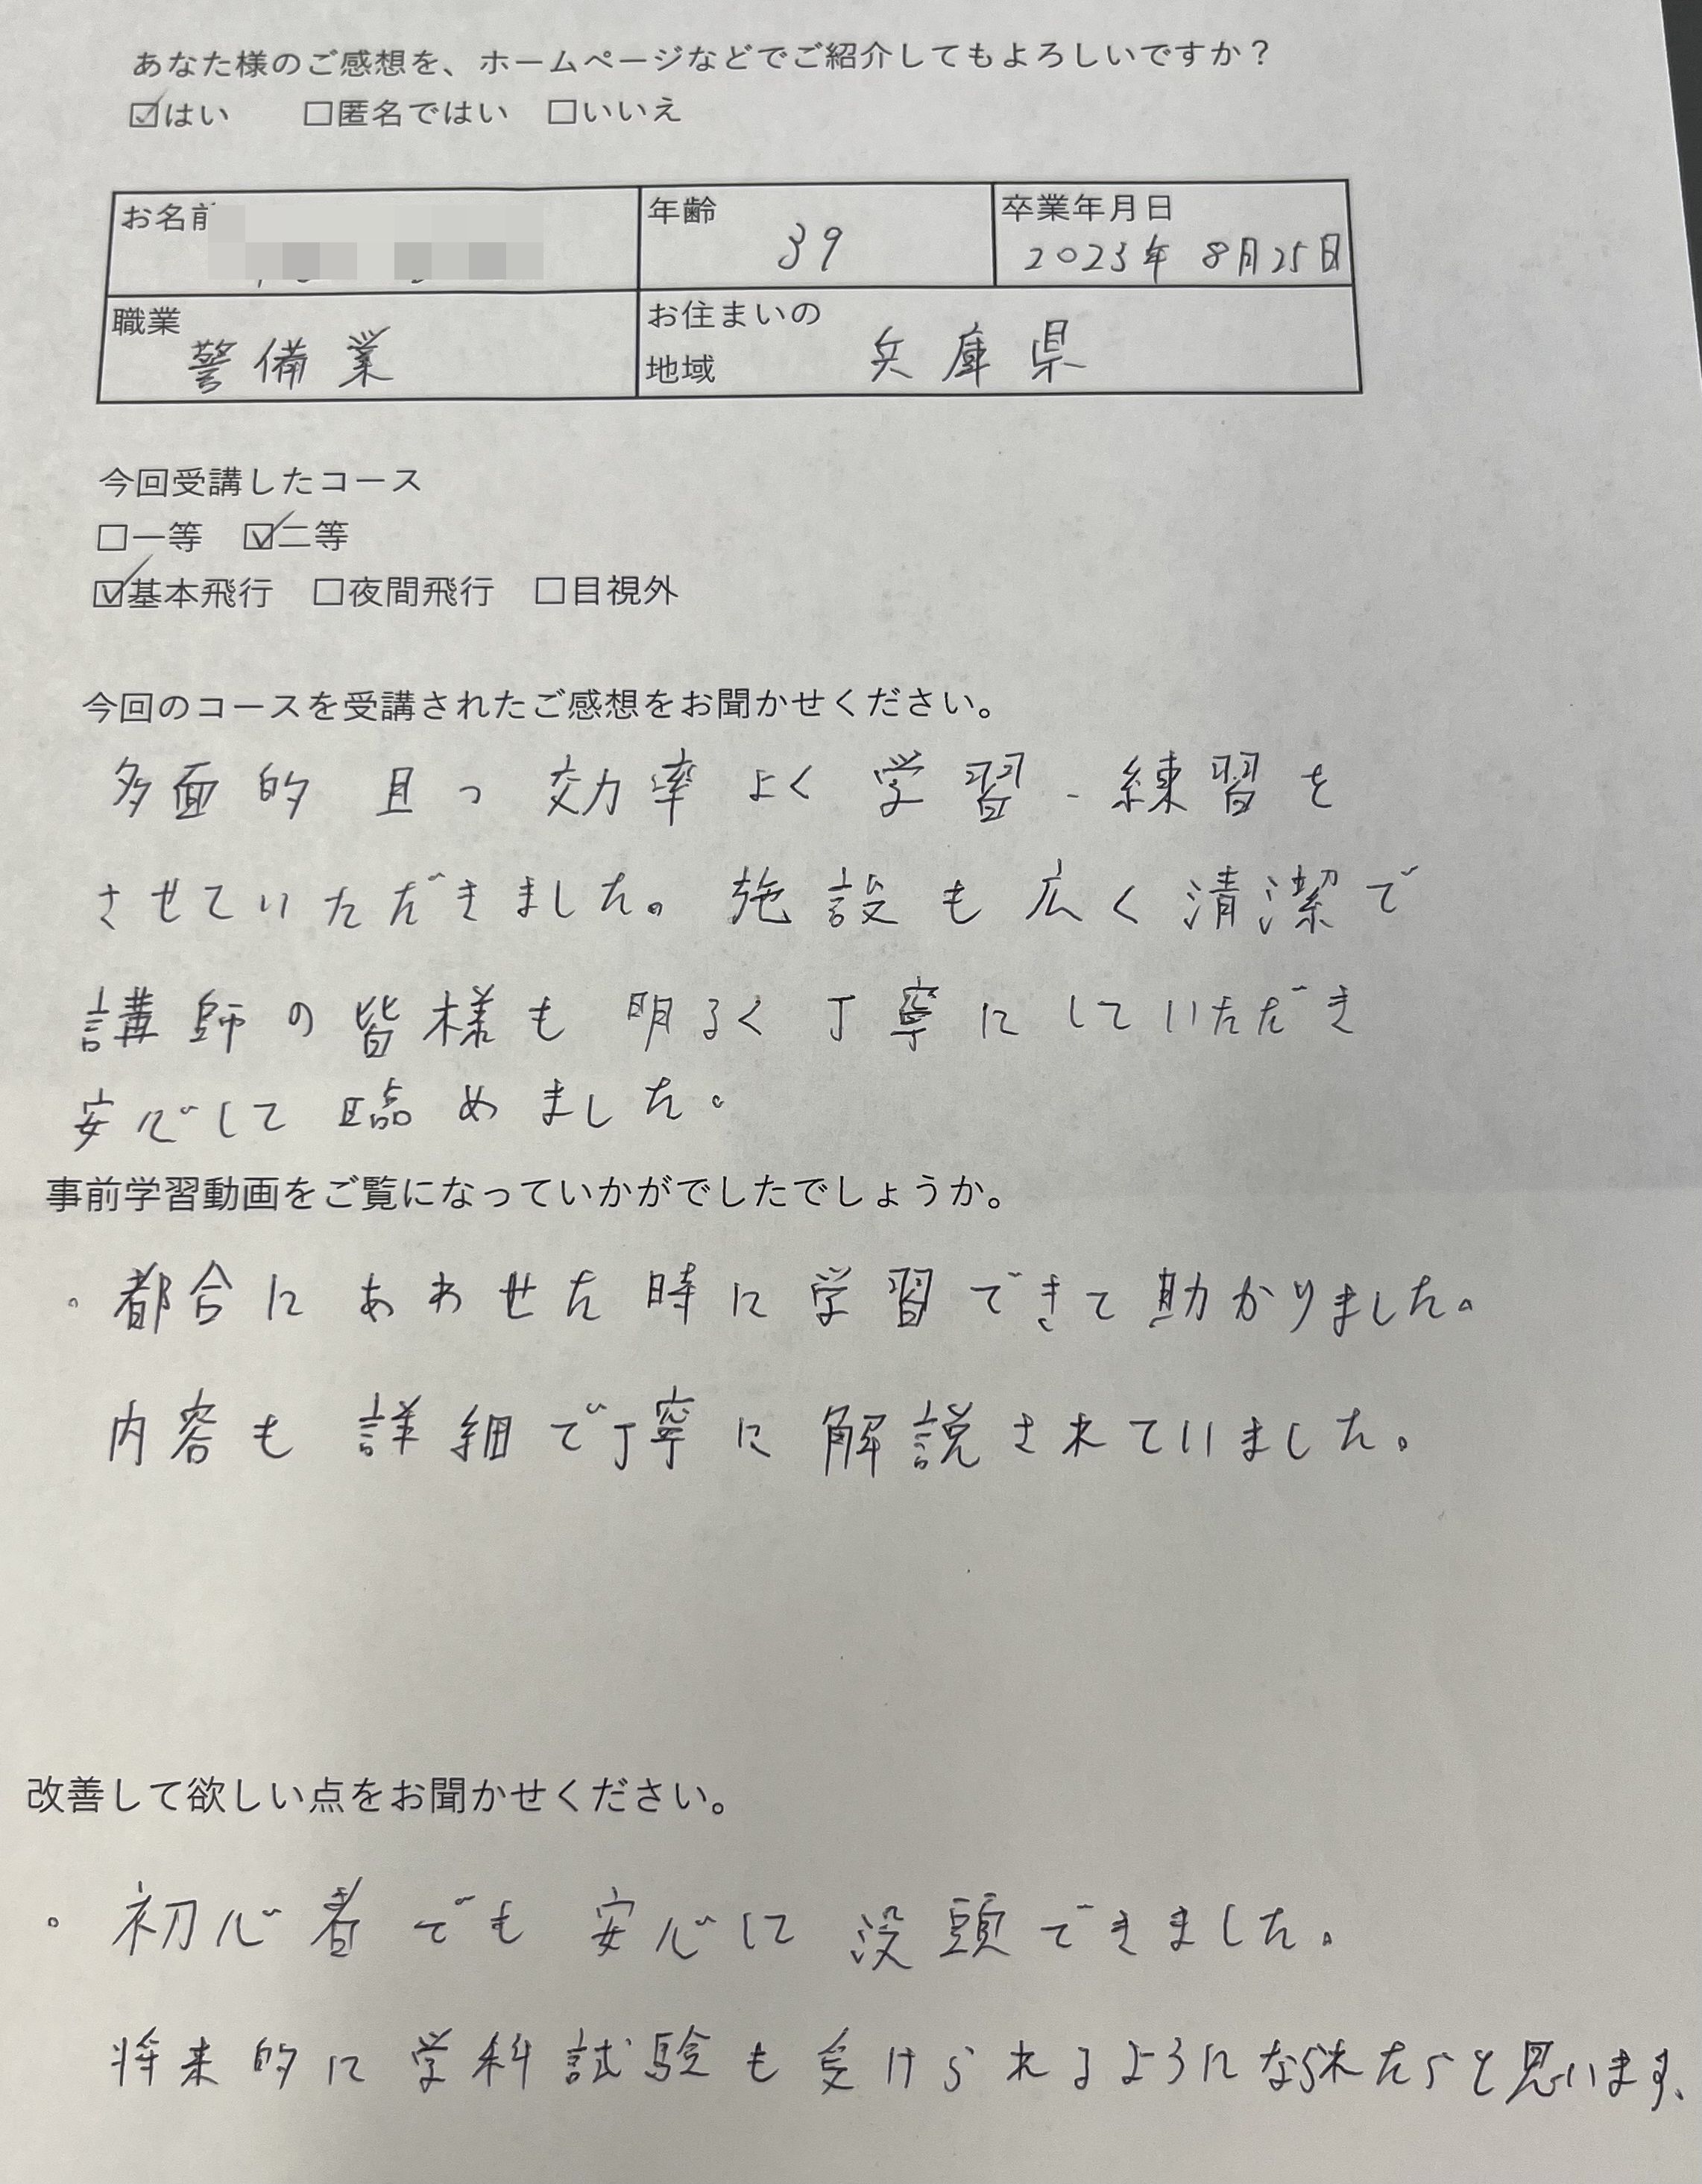 あなた様のご感想を、ホームページなどでご紹介してもよろしいですか？
☑はい　□匿名ではい　□いいえ
お名前
年齢 39
卒業年月日 2023年 8月25日
職業 警備業
お住まいの地域 兵庫県
今回受講したコース
□一等　☑二等
☑基本飛行　□夜間飛行　□目視外
今回のコースを受講されたご感想をお聞かせください。
多面的且つ効率よく学習・練習を
させていただきました。施設も広く清潔で
講師の皆様も明るく丁寧にしていただき
安心して臨めました。
事前学習動画をご覧になっていかがでしたでしょうか。
。都合にあわせた時に学習できて助かりました。
内容も詳細で丁寧に解説されていました。
改善して欲しい点をお聞かせください。
。初心者でも安心して没頭できました。
将来的に学科試験も受けられるようになられたらと思います、